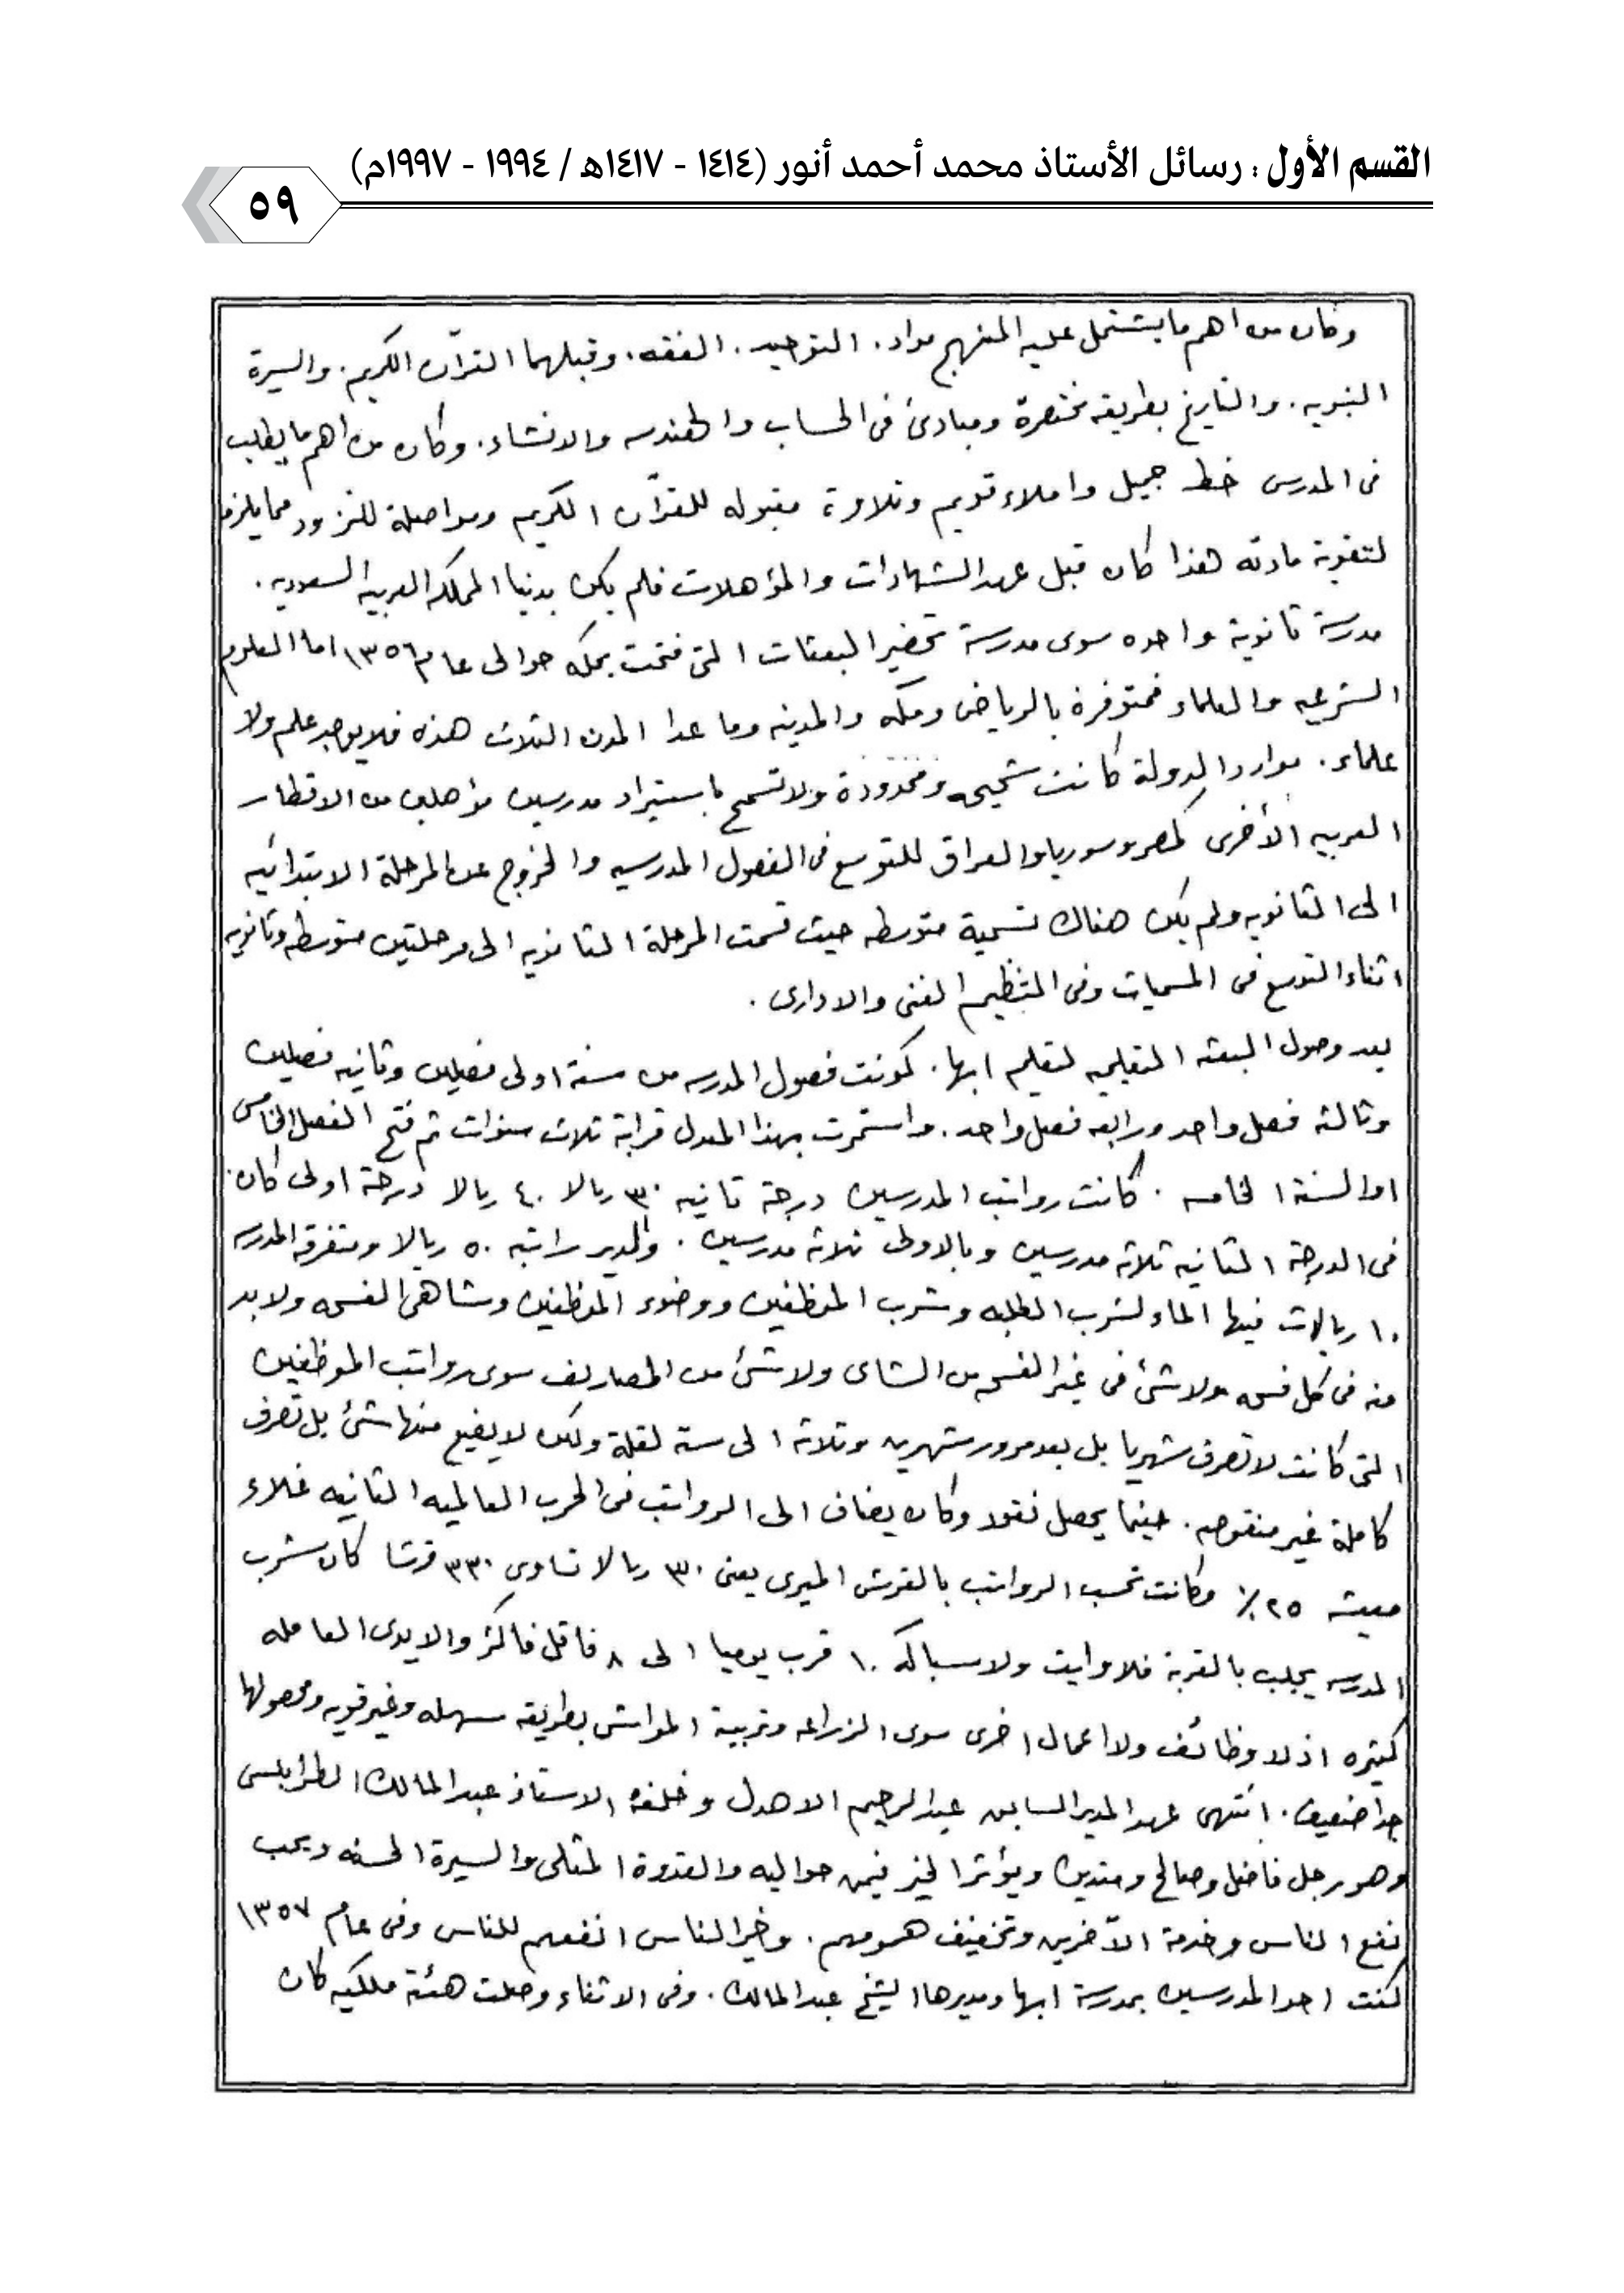 القسم الأول : رسائل الأستاذ محمد أحمد أنور (١٤١٤ - ١٤١٧هـ / ١٩٩٤ - ١٩٩٧م)
٥٩
وكان من اهم ما يشتمل عليه المنهج مواد . التوحيد . الفقه . وقبلهما القرآن الكريم . والسيرة
النبويه . والتاريخ بطريقه مختصرة ومبادئ فى الحساب والهندسه والانشاء . وكان من اهم ما يطلب
فى المدرس خط جميل واملاء قويم وتلاوة مقبوله للقرآن الكريم ومواصلة للتزود مما يلزم
لتقوية مادته هذا كان قبل عهد الشهادات والمؤهلات فلم يكن بدنيا المملكه العربيه السعوديه .
مدرسة ثانوية واحده سوى مدرسة تحضير البعثات التى فتحت بمكه حوالى عام ١٣٥٦ اما العلوم
الشرعيه والعلماء فمتوفرة بالرياض ومكه والمدينه وما عدا المدن الثلاث هذه فلا يوجد علم ولا
علماء . موارد الدولة كانت شحيحه ومحدودة ولا تسمح باستيراد مدرسين مؤهلين من الاقطار
العربيه الأخرى كمصر وسوريا والعراق للتوسع فى الفصول المدرسيه والخروج عن المرحلة الابتدائيه
الى الثانويه ولم يكن هناك تسمية متوسطه حيث قسمت المرحلة الثانويه الى مرحلتين متوسطه وثانويه
اثناء التوسع فى المسميات وفى التنظيم الفنى والادارى .
بعد وصول البعثه التعليميه لتعليم ابها . كونت فصول المدرسه من سنة اولى فصيلين وثانيه فصيلين
وثالثه فصل واحد ورابعه فصل واحد . واستمرت بهذا المعدل قرابة ثلاث سنوات ثم فتح الفصل الخامس
او السنة الخامسه . كانت رواتب المدرسين درجة ثانيه ٣٠ ريالا ٤٠ ريالا درجة اولى كان
فى الدرجة الثانيه ثلاثه مدرسين وبالاولى ثلاثة مدرسين . والمدير راتبه ٥٠ ريالا ومتفرقه المدرسه
١٠ ريالات فيها الماء لشرب الطلبه وشرب الموظفين ووضوء الموظفين وشاهى الفسحه ولابد
منه فى كل فسحه ولا شئ فى غير الفسحه من الشاى ولا شئ من المصاريف سوى رواتب الموظفين
التى كانت لا تصرف شهريا بل بعد مرور شهرين وثلاثه الى ستة لقلة ولكن لا يضيع منها شئ بل تصرف
كاملة غير منقوصه . حينما يحصل نقود وكان يضاف الى الرواتب فى الحرب العالميه الثانيه غلاء
معيشه ٢٥٪ وكانت تحسب الرواتب بالقرش الميرى يعنى ٣٠ ريالا تساوى ٣٣٠ قرشا كان شرب
المدرسه يجلب بالقربة فلا وايت ولا سباكه ١٠ قرب يوميا الى ٨ فاقل فاكثر والايدى العامله
كثيره اذ لا وظائف ولا اعمال اخرى سوى الزراعه وتربية المواشى بطريقه سهله وغير قويه ومحصولها
جدا ضعيف . انتهى عهد المدير السابق عبدالرحيم الاهدل وخلفه الاستاذ عبدالمالك الطرابلسى
وهو رجل فاضل وصالح ومتدين ويؤثر الخير فيمن حواليه والقدوة المثلى والسيرة الحسنه ويحب
نفع الناس وخدمة الآخرين وتخفيف همومهم . وخير الناس انفعهم للناس وفى عام ١٣٥٧
كنت احد المدرسين بمدرسة ابها ومديرها الشيخ عبدالمالك . وفى الاثناء وصلت هئة ملكيه كان